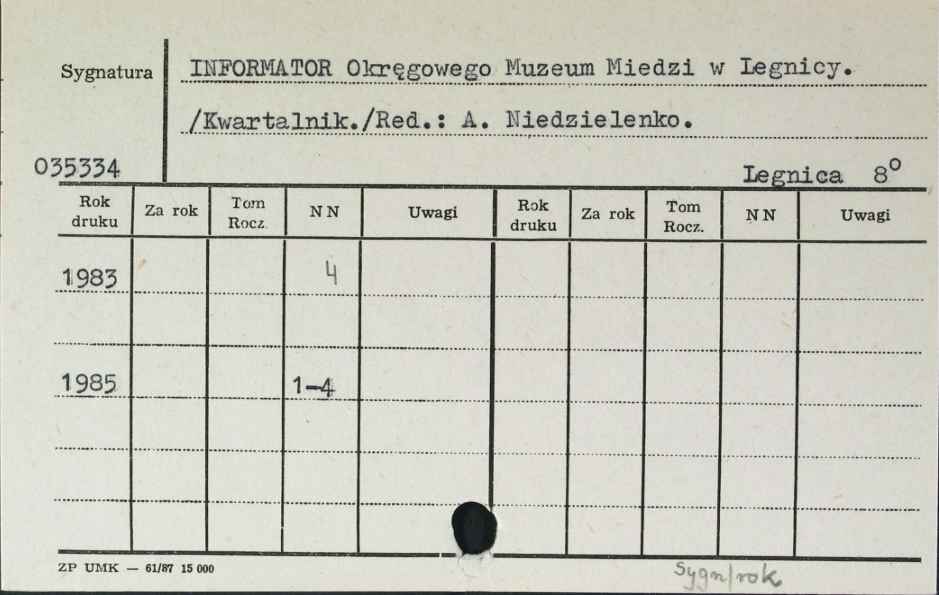 Sygnatura
INFORMATOR Okręgowego Muzeum Miedzi w Legnicy.
/Kwartalnik./Red.: A. Niedzielenko.
035334
Legnica 8°
Rok druku Za rok Tom Rocz. NN Uwagi Rok druku Za rok Tom Rocz. NN Uwagi
1983 4
1985 1-4
ZP UMK — 61/87 15 000
Sygn/rok